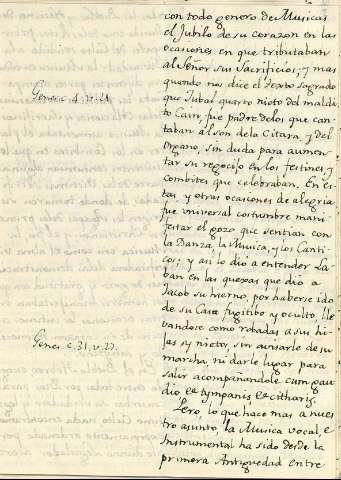 con todo genero de Musicas
el Jubilo de su corazon en las
ocasiones en que tributaban
al Señor sus Sacrificios; y mas
quando nos dice el Sexto sagrado
Genes. 4. v. 21.
que Jubal quarto nieto del maldi-
to Cain, fue padre de los que can-
taban al son de la Citara, y del
Organo, sin duda para aumen-
tar su regocijo en los festines, y
combites que celebraban. En es-
tas, y otras ocasiones de alegria
fue universal costumbre mani-
festar el gozo que sentian con
la Danza, la Musica, y los Canti-
cos; y asi lo dio a entender La-
ban en las quexas que dio a
Jacob su hierno, por haberse ido
de su Casa fugitibo y oculto, lle-
vandose como robadas a sus hi-
Genes. c. 31. v. 27.
jas y nieto, sin avisarle de su
marcha, ni darle lugar para
salir acompañandole cum gau-
dio et tympanis et citharis.
Pero, lo que hace mas a nues-
tro asunto, la Musica vocal, e
Instrumental ha sido desde la
primera Antiguedad entre